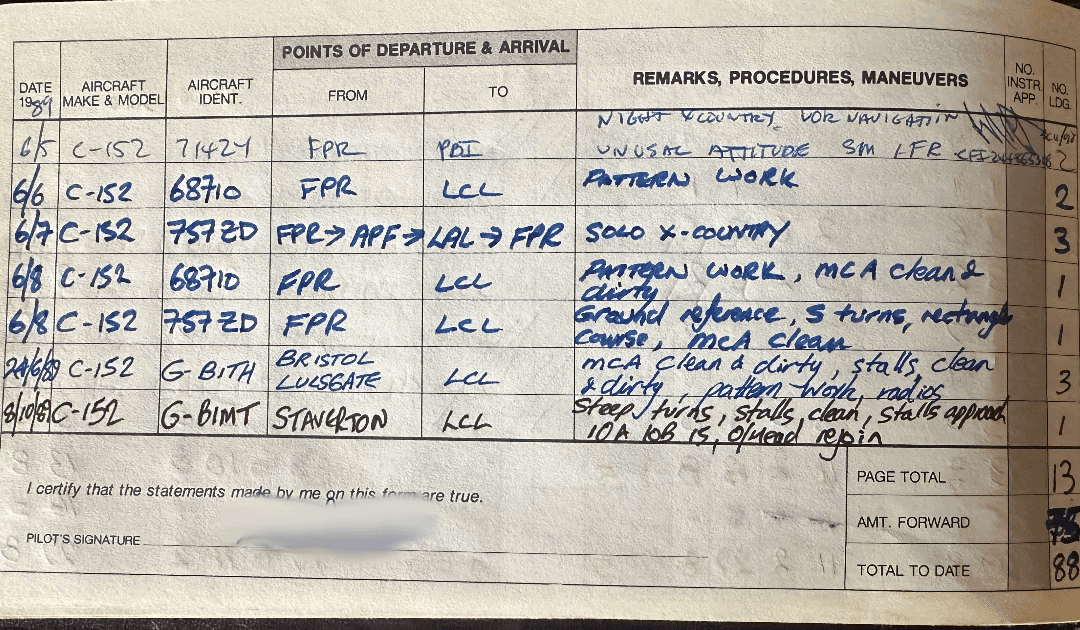 POINTS OF DEPARTURE & ARRIVAL
DATE 1989 AIRCRAFT MAKE & MODEL AIRCRAFT IDENT. FROM TO REMARKS, PROCEDURES, MANEUVERS NO. INSTR APP. NO. LDG.
NIGHT X COUNTRY VOR NAVIGATION
6/5 C-152 FPR PBI UNUSAL ATTITUDE 2
6/6 C-152 68710 FPR LCL PATTERN WORK 2
6/7 C-152 757ZD FPR→APF→LAL→FPR SOLO X-COUNTRY 3
6/8 C-152 68710 FPR LCL PATTERN WORK, MCA clean &
dirty 1
6/8 C-152 757ZD FPR LCL Ground reference, S turns, rectangle
course, MCA clean 1
24/6/89 C-152 G-BITH BRISTOL LULSGATE LCL MCA Clean & dirty, stalls clean
& dirty, pattern work, radios 3
8/10/89 C-152 G-BIMT STAVERTON LCL Steep turns, stalls, clean, stalls approach
10A 10B 15, O/Head rejoin 1
I certify that the statements made by me on this form are true.
PILOT'S SIGNATURE
PAGE TOTAL 13
AMT. FORWARD 75
TOTAL TO DATE 88